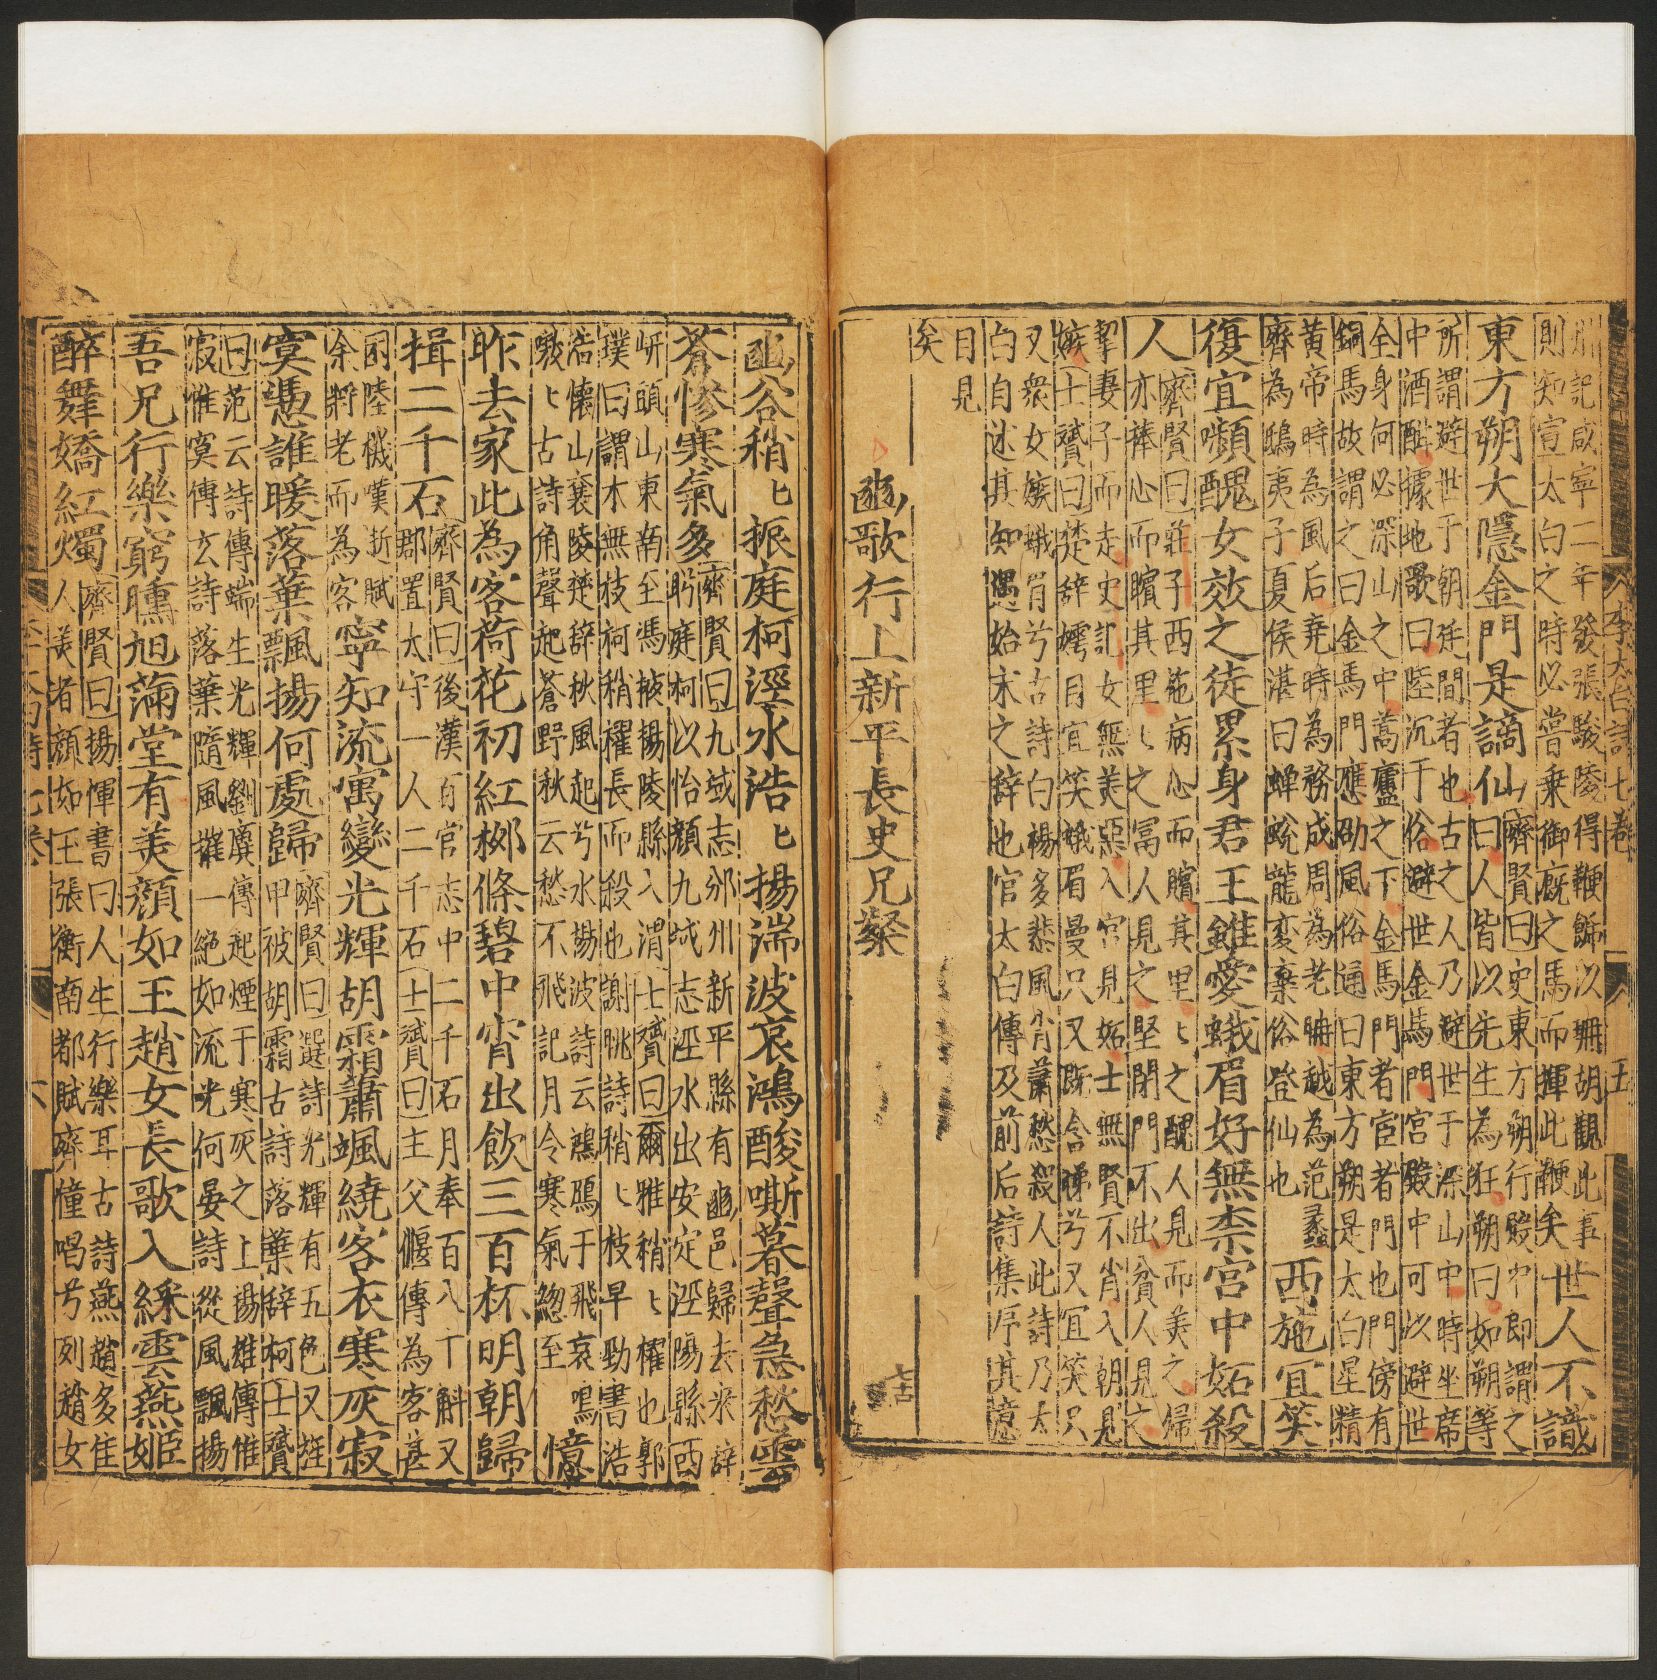 州記咸寧二年發張駿陵得鞭飾以珊胡觀此事
則知宣太白之時必嘗乗御廐之馬而揮此鞭矣世人不識
東方朔大隱金門是謫仙齊賢曰史東方朔行殿中即謂之
曰人皆以先生為狂朔曰如朔等
所謂避世于朝廷間者也古之人乃避世于深山中時坐席
中酒酣據地歌曰陸沉于俗避世金馬門宮殿中可以避世
全身何必深山之中蒿廬之下金馬門者宦者門也門傍有
銅馬故謂之曰金馬門應劭風俗通曰東方朔是太白星精
黄帝時為風后堯時為務成周為老聃越為范蠡
齊為鴟夷子夏侯湛曰蟬蛻龍変棄俗登仙也西施宜笑
復宜嚬醜女效之徒累身君王雖愛蛾眉好無柰宮中妬殺
人齊賢曰莊子西施病心而矉其里〻之醜人見而美之歸
亦捧心而矉其里〻之冨人見之堅閉門不出貧人見之
挈妻子而走史記女無美惡入宮見妬士無賢不肖入朝見
嫉士贇曰楚辞嫮目宜笑娥眉曼只又既含睇兮又宜笑只
又衆女嫉蛾眉兮古詩白楊多悲風肖蕭愁殺人此詩乃太
白自述其知遇始末之辞也官太白傳及前后詩集序其意
目見
矣
豳歌行上新平長史兄粲
七古
李太白詩七卷 五
豳谷稍〻振庭柯涇水浩〻揚湍波哀鴻酸嘶暮聲急愁雲
蒼慘寒氣多齊賢曰九域志邠州新平縣有豳邑歸去来辞
眄庭柯以怡顔九域志涇水出安定涇陽縣西
岍頭山東南至馮掖楊陵縣入渭士贇曰爾雅稍〻櫂也郭
璞曰謂木無枝柯稍櫂長而殺也謝眺詩稍〻枝早勁書浩
浩懷山襄陵楚辞秋風起兮水揚波詩云鴻鴈于飛哀鳴
嗸〻古詩角聲起蒼野秋云愁不飛記月令寒氣緫至憶
昨去家此為客荷花初紅柳條碧中宵出飲三百杯明朝歸
揖二千石齊賢曰後漢百官志中二千石月奉百八十斛又
郡置太守一人二千石士贇曰主父偃傳為客甚
困陸機嘆逝賦
余將老而為客寧知流寓變光輝胡霜蕭颯繞客衣寒灰寂
寞憑誰暖落葉飄揚何處歸齊賢曰選詩光輝有五色又旌
甲被胡霜古詩落葉辞柯士贇
曰范云詩傳端生光輝劉廙傳起煙于寒灰之上揚雄傳惟
寂惟寞傳玄詩落葉隨風摧一絕如流光何晏詩從風飄揚
吾兄行樂窮曛旭滿堂有美顔如玉趙女長歌入綵雲燕姬
醉舞嬌紅燭齊賢曰揚惲書曰人生行樂耳古詩燕趙多佳
人美者顔如玉張衡南都賦齊憧唱兮列趙女